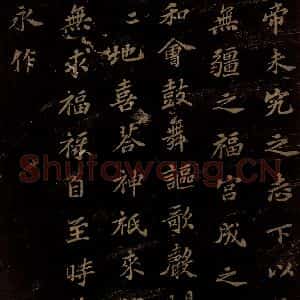 帝未究之志下以
無疆之福宫成之
和會鼓舞謳歌聲
地喜荅神祇來
無求福祿自至時
永作
Shufawang.CN